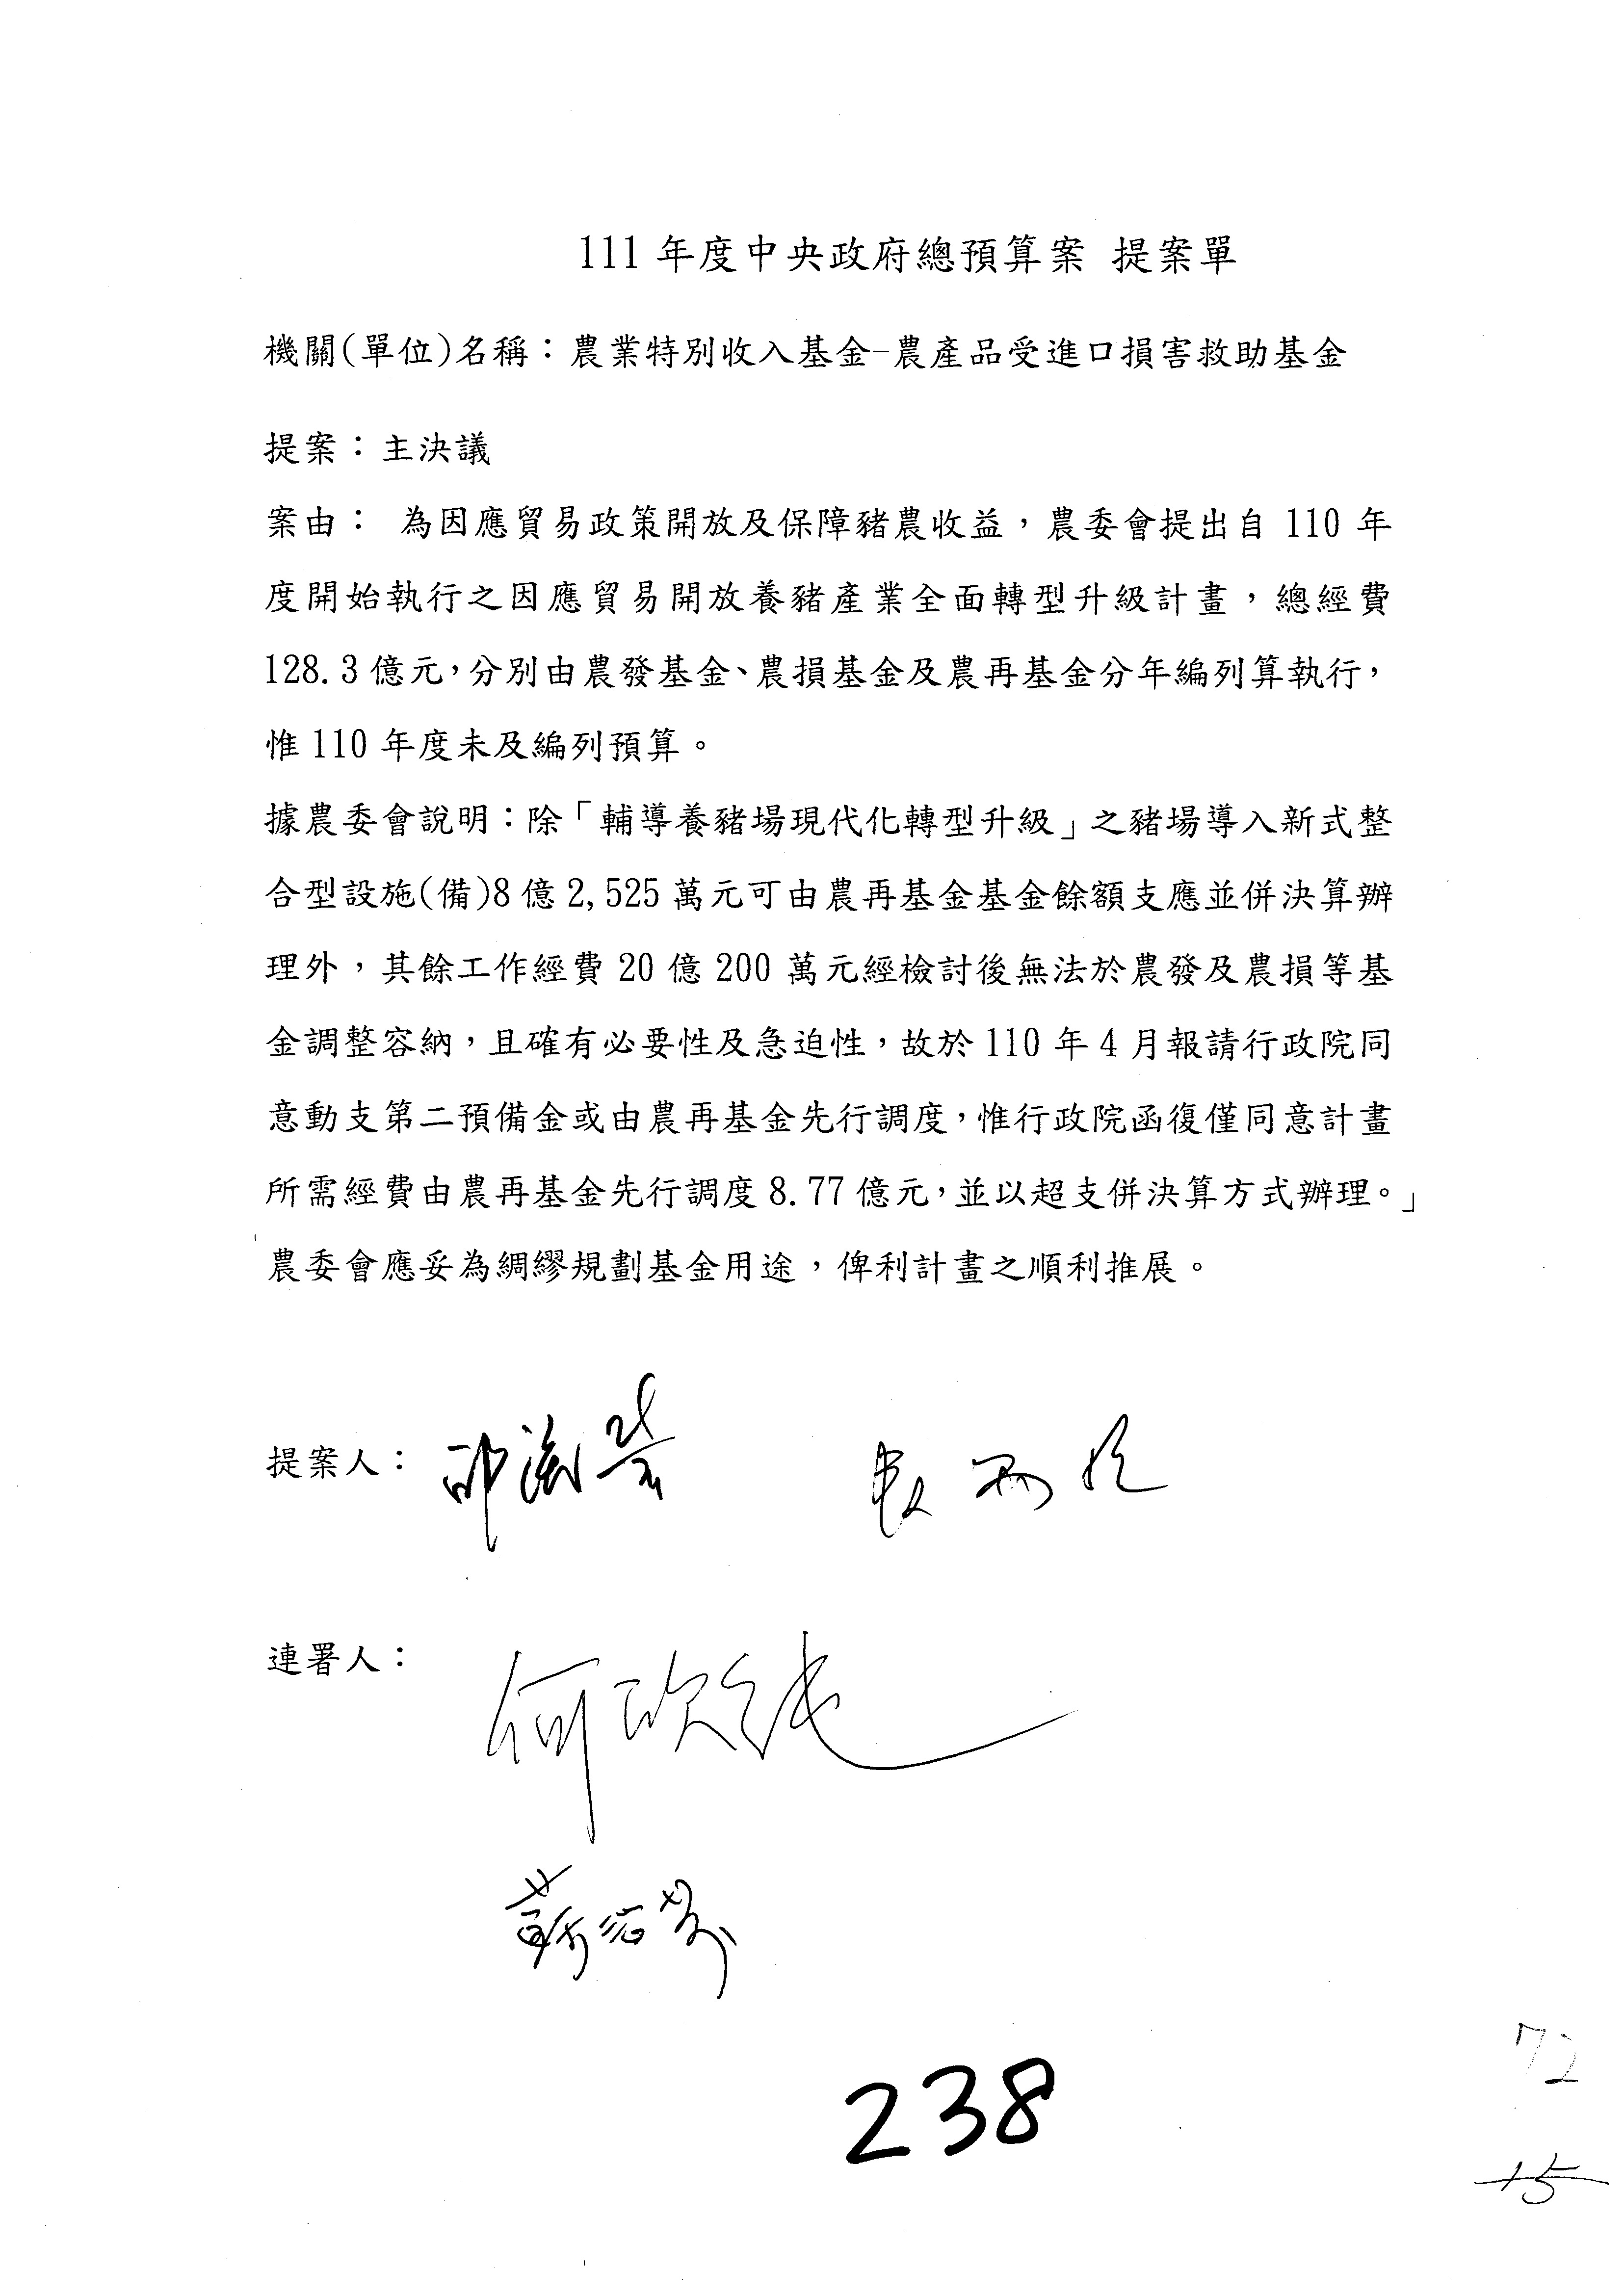 111 年度中央政府總預算案 提案單
機關(單位)名稱：農業特別收入基金-農產品受進口損害救助基金
提案：主決議
案由： 為因應貿易政策開放及保障豬農收益，農委會提出自 110 年
度開始執行之因應貿易開放養豬產業全面轉型升級計畫，總經費
128.3 億元，分別由農發基金、農損基金及農再基金分年編列算執行，
惟 110 年度未及編列預算。
據農委會說明：除「輔導養豬場現代化轉型升級」之豬場導入新式整
合型設施(備)8 億 2,525 萬元可由農再基金基金餘額支應並併決算辦
理外，其餘工作經費 20 億 200 萬元經檢討後無法於農發及農損等基
金調整容納，且確有必要性及急迫性，故於 110 年 4 月報請行政院同
意動支第二預備金或由農再基金先行調度，惟行政院函復僅同意計畫
所需經費由農再基金先行調度 8.77 億元，並以超支併決算方式辦理。」
農委會應妥為綢繆規劃基金用途，俾利計畫之順利推展。
提案人：
連署人：
何欣純
蘇治芬
238
72
15